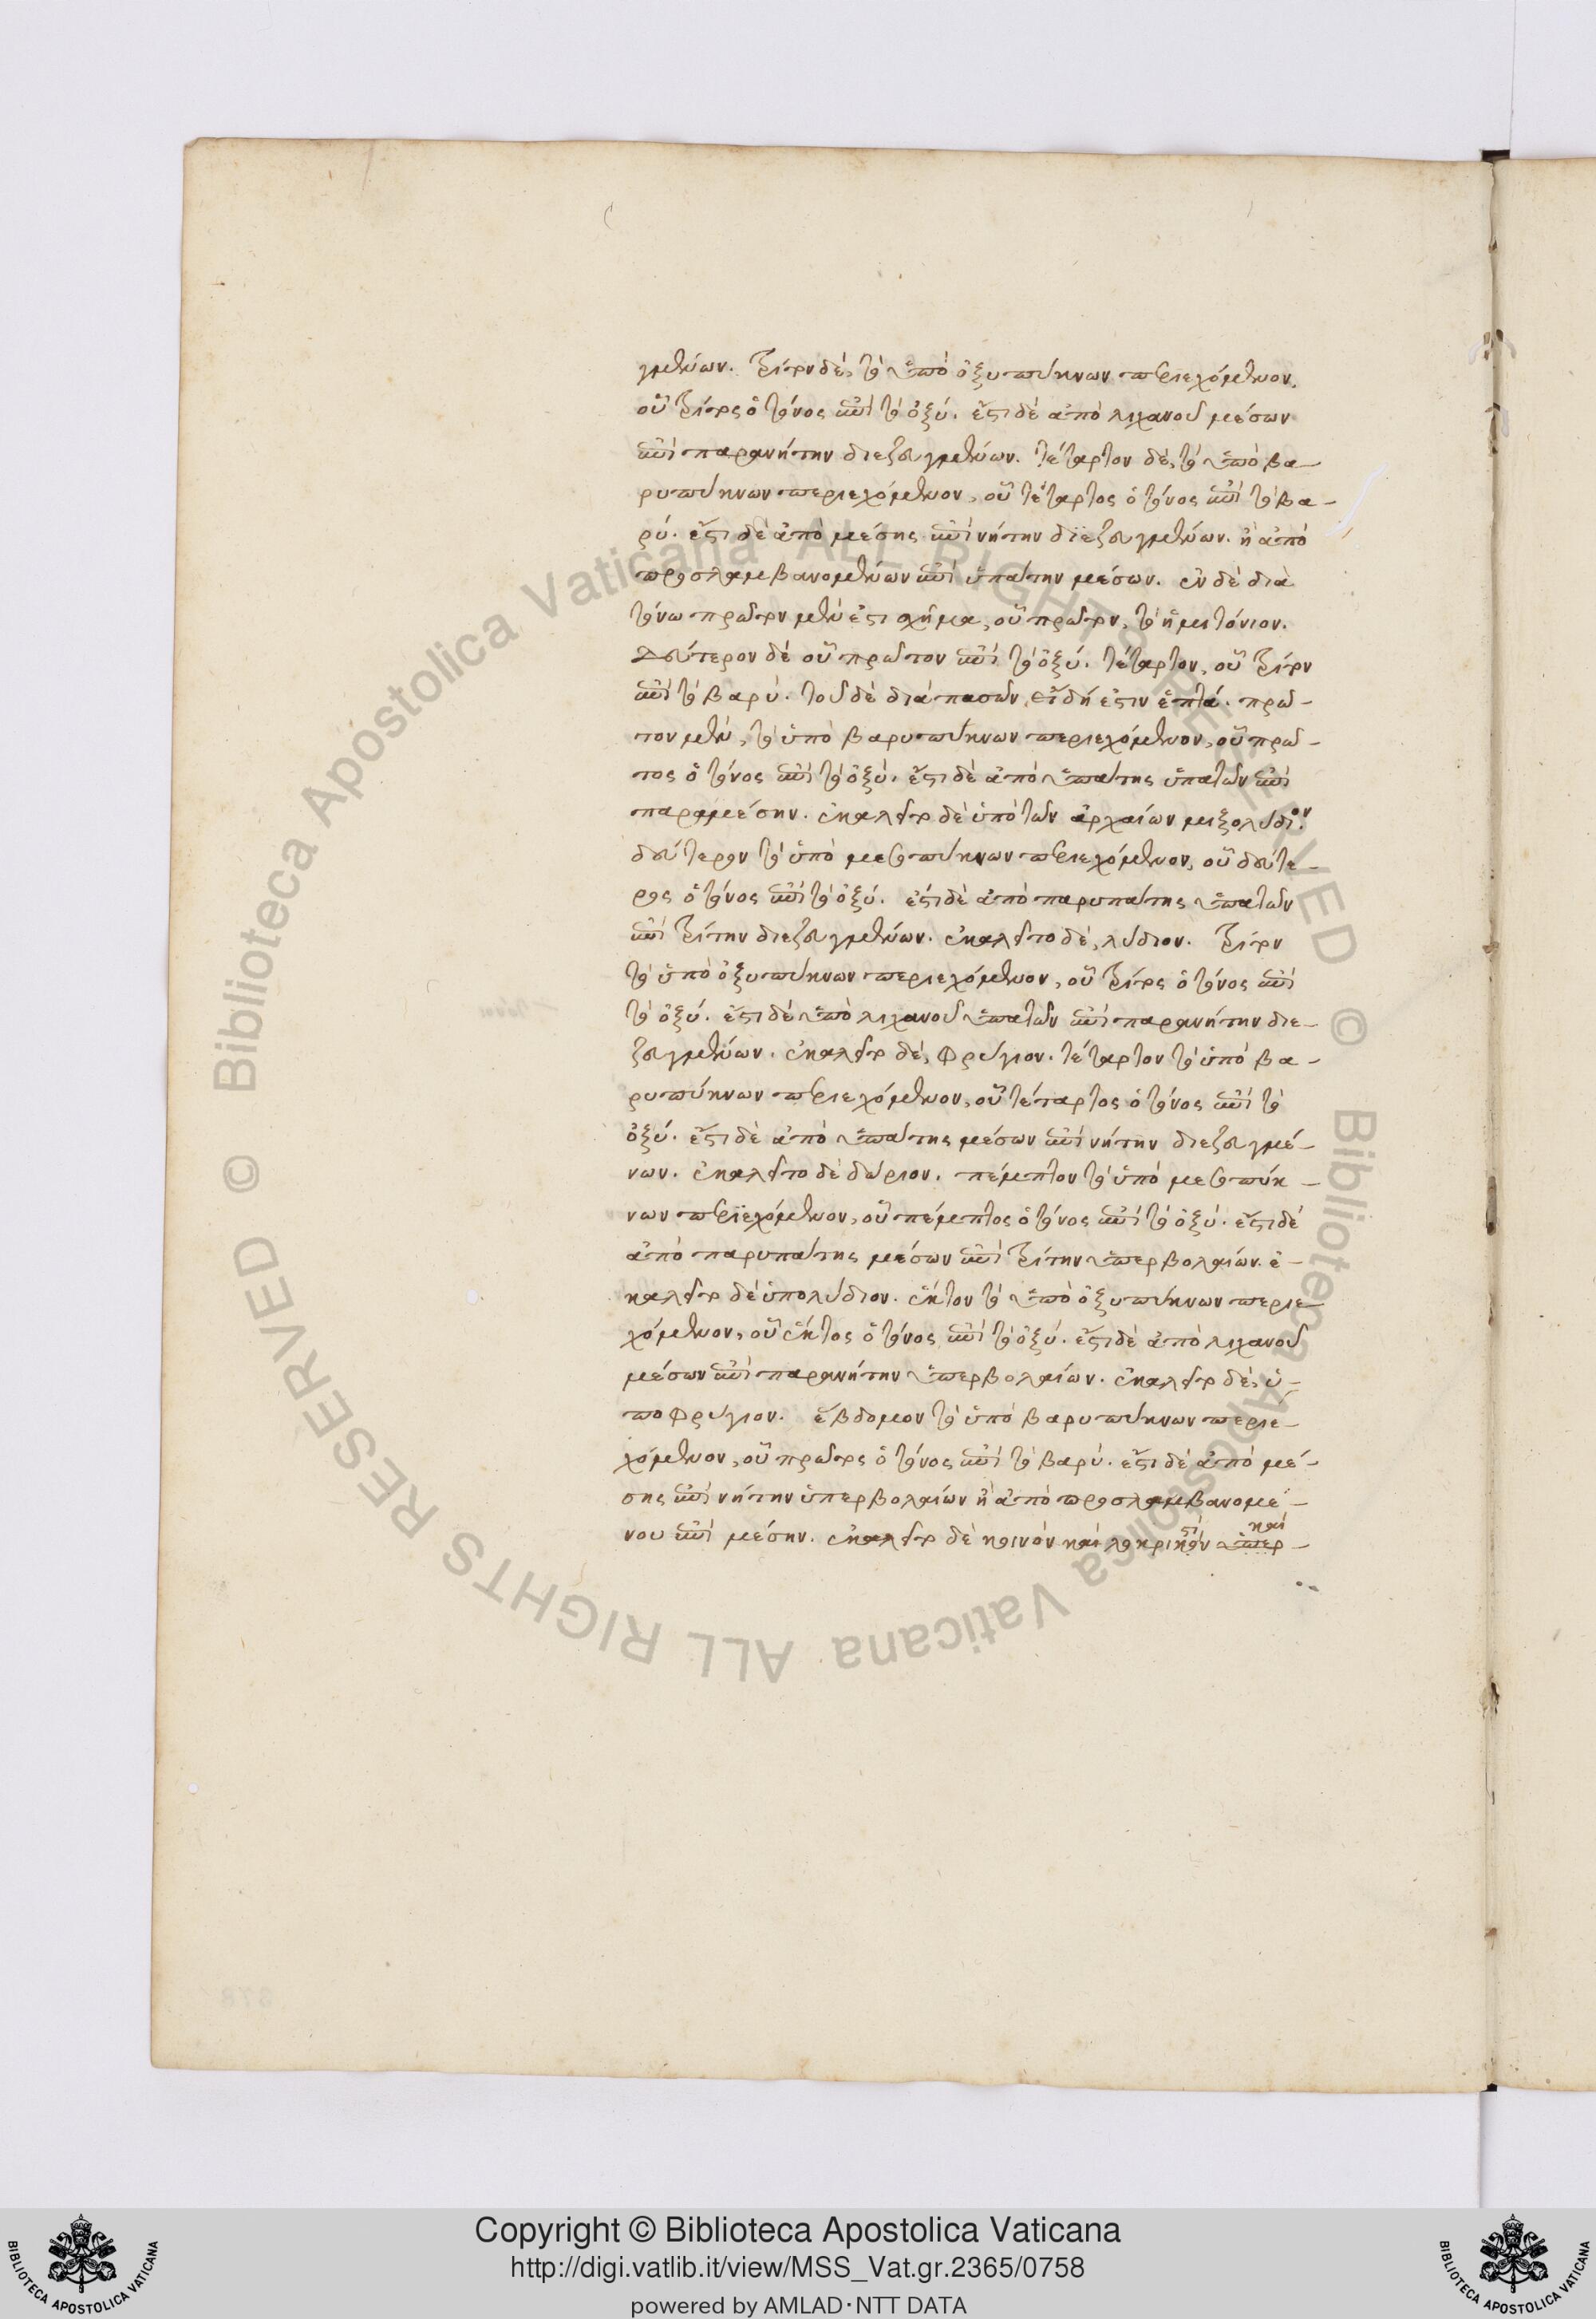 γμένων. τρίτον δὲ, τὸ ὑπὸ ὀξυπύκνων περιεχόμενον,
οὗ τρίτος ὁ τόνος ἐπὶ τὸ ὀξύ. ἔστι δὲ ἀπὸ λιχανοῦ μέσων
ἐπὶ παρανήτην διεζευγμένων. τέταρτον δὲ, τὸ ὑπὸ βα-
ρυπύκνων περιεχόμενον, οὗ τέταρτος ὁ τόνος ἐπὶ τὸ βα-
ρύ. ἔστι δὲ ἀπὸ μέσης ἐπὶ νήτην διεζευγμένων. ἢ ἀπὸ
προσλαμβανομένων ἐπὶ ὑπάτην μέσων. ἐν δὲ διὰ
τόνω πρῶτον μέν ἐστι σχῆμα, οὗ πρῶτον, τὸ ἡμιτόνιον.
δεύτερον δὲ οὗ πρῶτον ἐπὶ τὸ ὀξύ. τέταρτον, οὗ τρίτον
ἐπὶ τὸ βαρύ. τοῦ δὲ διὰ πασῶν, εἴδη ἐστὶν ἑπτά. πρῶ-
τον μὲν, τὸ ὑπὸ βαρυπύκνων περιεχόμενον, οὗ πρῶ-
τος ὁ τόνος ἐπὶ τὸ ὀξύ. ἔστι δὲ ἀπὸ ὑπάτης ὑπατῶν ἐπὶ
παραμέσην. ἐκαλεῖτο δὲ ὑπὸ τῶν ἀρχαίων μιξολύδιον.
δεύτερον τὸ ὑπὸ μεσοπύκνων περιεχόμενον, οὗ δεύτε-
ρος ὁ τόνος ἐπὶ τὸ ὀξύ. ἔστι δὲ ἀπὸ παρυπάτης ὑπατῶν
ἐπὶ τρίτην διεζευγμένων. ἐκαλεῖτο δὲ, λύδιον. τρίτον
τὸ ὑπὸ ὀξυπύκνων περιεχόμενον, οὗ τρίτος ὁ τόνος ἐπὶ
τὸ ὀξύ. ἔστι δὲ ἀπὸ λιχανοῦ ὑπατῶν ἐπὶ παρανήτην διε-
ζευγμένων. ἐκαλεῖτο δὲ, φρύγιον. τέταρτον τὸ ὑπὸ βα-
ρυπύκνων περιεχόμενον, οὗ τέταρτος ὁ τόνος ἐπὶ τὸ
ὀξύ. ἔστι δὲ ἀπὸ ὑπάτης μέσων ἐπὶ νήτην διεζευγμέ-
νων. ἐκαλεῖτο δὲ δώριον. πέμπτον τὸ ὑπὸ μεσοπύκ-
νων περιεχόμενον, οὗ πέμπτος ὁ τόνος ἐπὶ τὸ ὀξύ. ἔστι δὲ
ἀπὸ παρυπάτης μέσων ἐπὶ τρίτην ὑπερβολαίων. ἐ-
καλεῖτο δὲ ὑπολύδιον. ἕκτον τὸ ὑπὸ ὀξυπύκνων περιε
χόμενον, οὗ ἕκτος ὁ τόνος ἐπὶ τὸ ὀξύ. ἔστι δὲ ἀπὸ λιχανοῦ
μέσων ἐπὶ παρανήτην ὑπερβολαίων. ἐκαλεῖτο δὲ, ὑ-
ποφρύγιον. ἕβδομον τὸ ὑπὸ βαρυπύκνων περιε-
χόμενον, οὗ πρῶτος ὁ τόνος ἐπὶ τὸ βαρύ. ἔστι δὲ ἀπὸ μέ-
σης ἐπὶ νήτην ὑπερβολαίων ἢ ἀπὸ προσλαμβανομέ-
νου ἐπὶ μέσην. ἐκαλεῖτο δὲ κοινὸν καὶ λοκρικὸν καὶ ὑπερ-
Copyright © Biblioteca Apostolica Vaticana
http://digi.vatlib.it/view/MSS_Vat.gr.2365/0758
powered by AMLAD·NTT DATA
BIBLIOTECA APOSTOLICA VATICANA
BIBLIOTECA APOSTOLICA VATICANA
© Biblioteca Apostolica Vaticana ALL RIGHTS RESERVED © Biblioteca Apostolica Vaticana ALL RIGHTS RESERVED